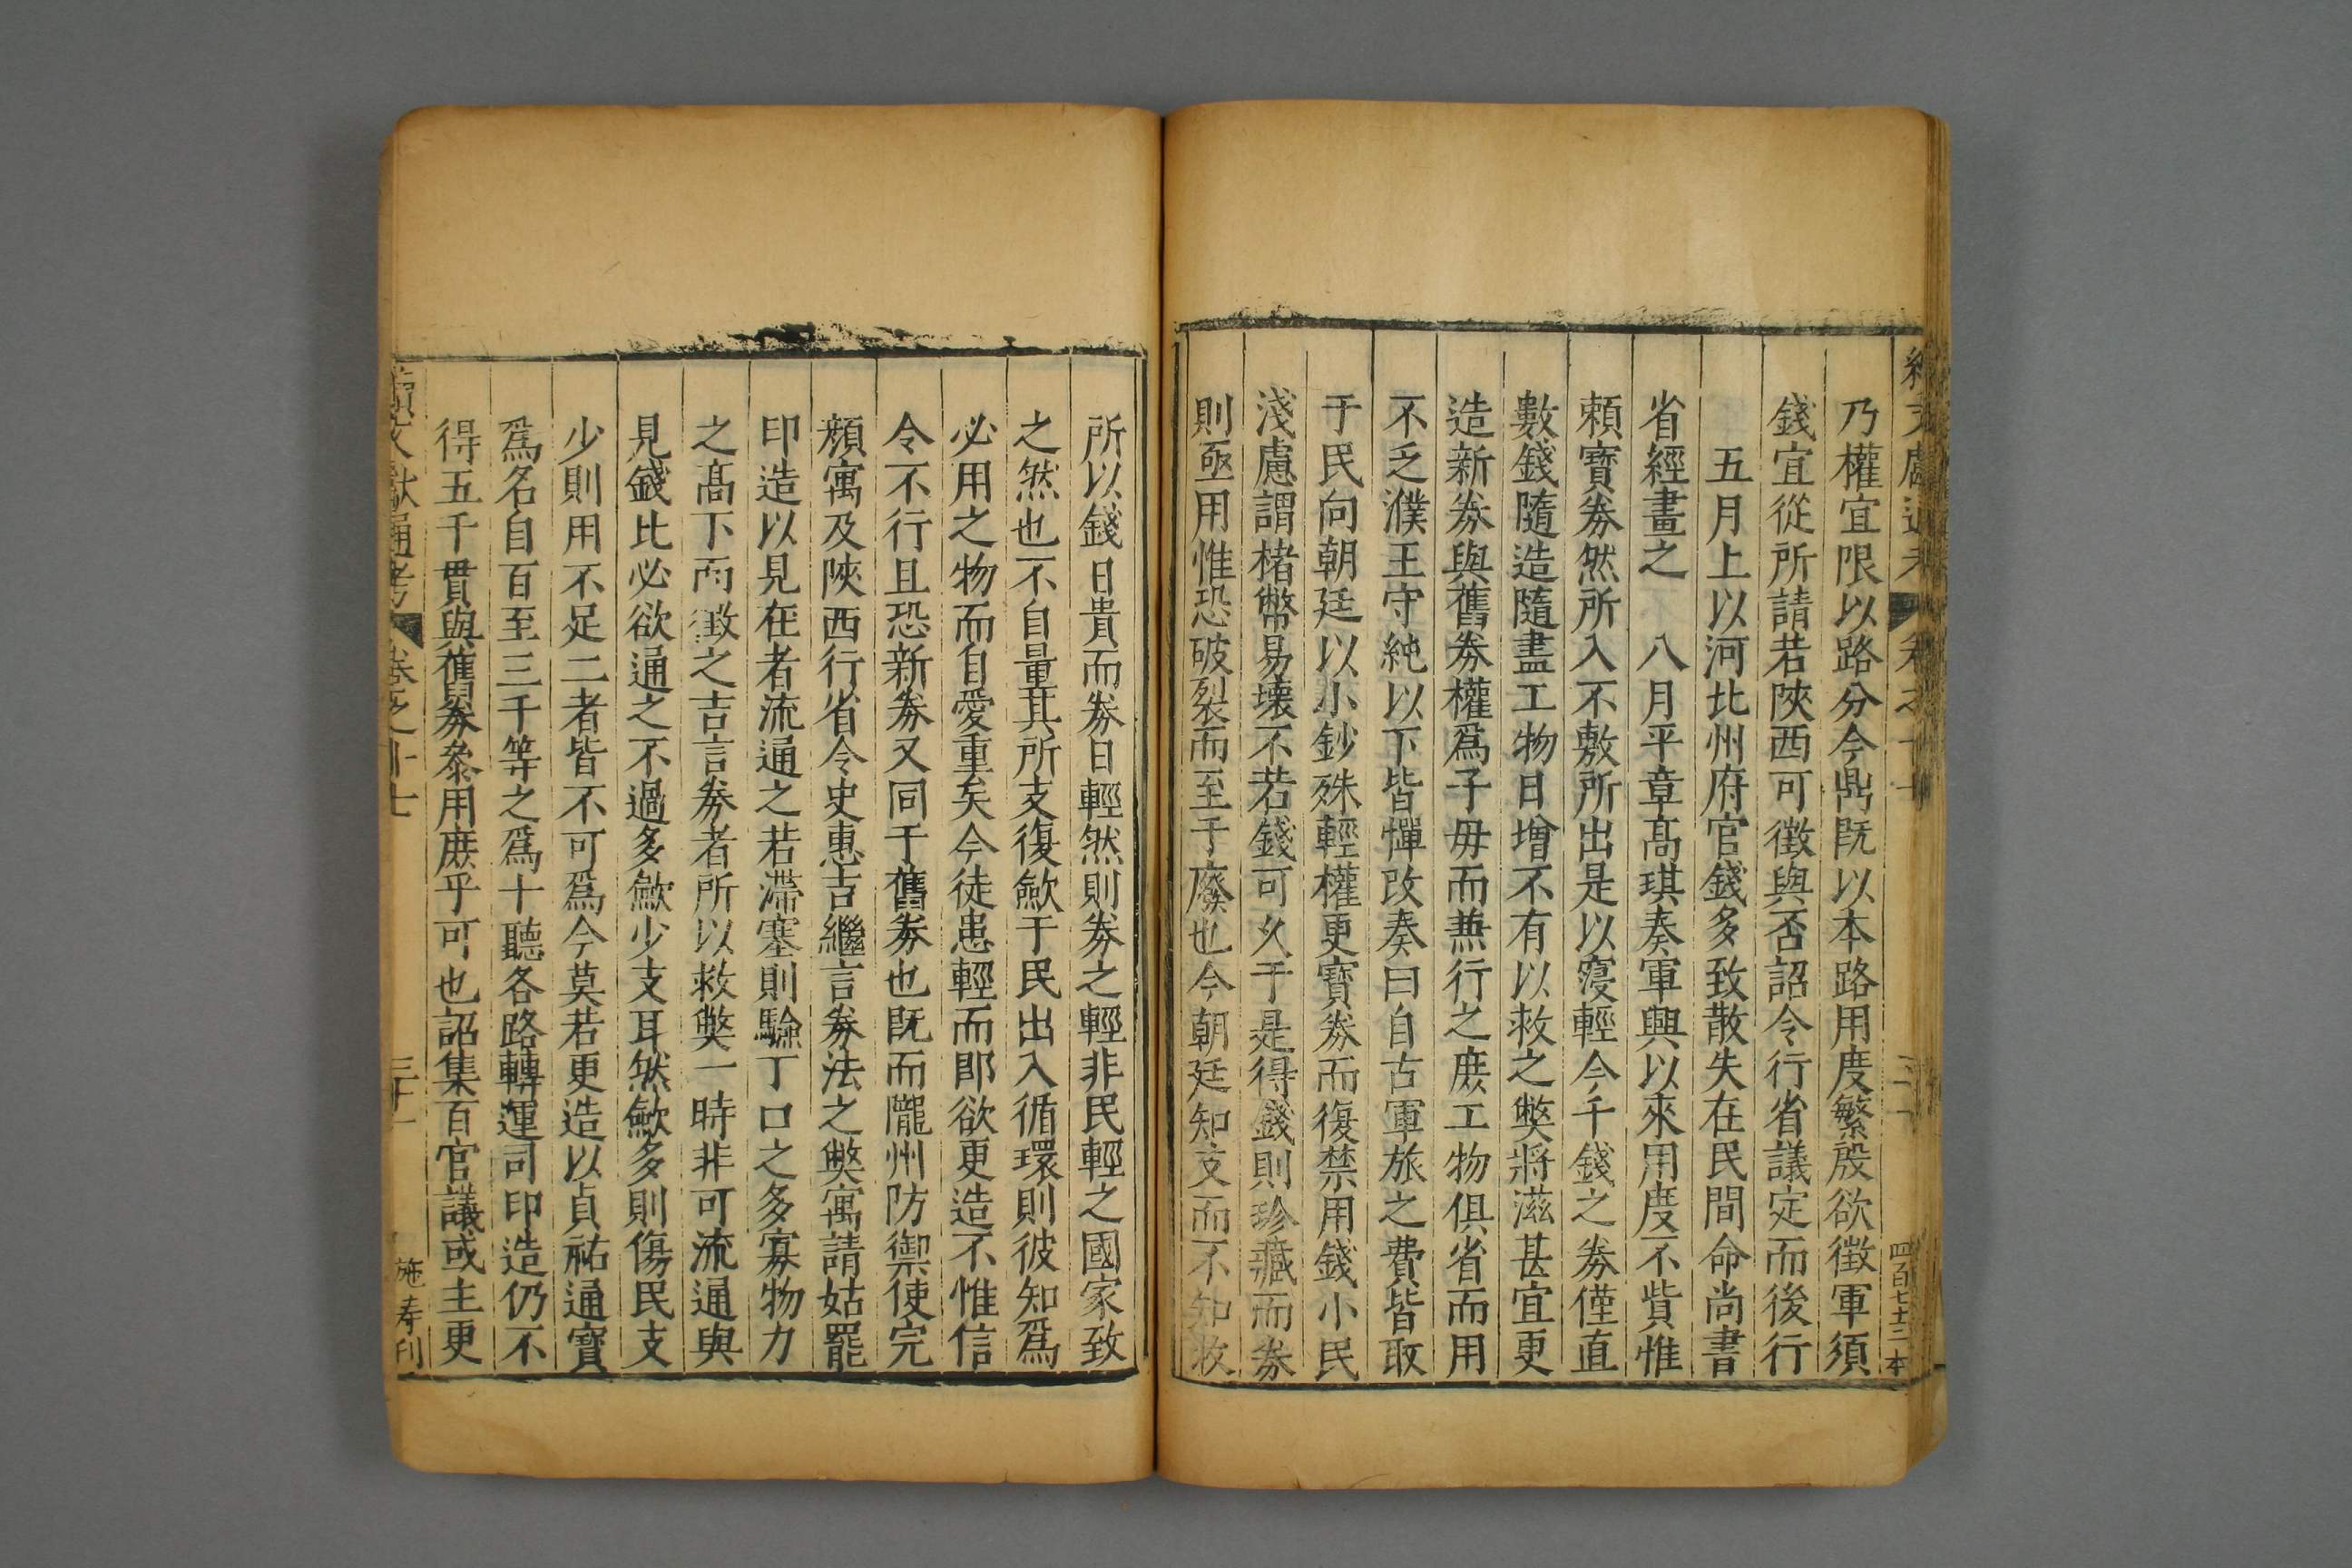 乃權宜限以路分今鼎既以本路用度繁殷欲徵軍須
錢宜從所請若陝西可徵與否詔令行省議定而後行
五月上以河北州府官錢多致散失在民間命尚書
省經畫之 八月平章髙琪奏軍興以來用度不貲惟
賴寳劵然所入不敷所出是以寖輕今千錢之劵僅直
數錢隨造隨盡工物日增不有以救之獘將滋甚宜更
造新劵與舊劵權爲子毋而兼行之庶工物俱省而用
不乏濮王守純以下皆憚改奏曰自古軍旅之費皆取
于民向朝廷以小鈔殊輕權更寳劵而復禁用錢小民
淺慮謂楮幣易壊不若錢可乆于是得錢則珍藏而劵
則亟用惟恐破裂而至于廢也今朝廷知支而不知收
所以錢日貴而劵日輕然則劵之輕非民輕之國家致
之然也不自量其所支復歛于民出入循環則彼知爲
必用之物而自愛重矣今徒患輕而即欲更造不惟信
令不行且恐新劵又同于舊劵也既而隴州防禦使完
顔寓及陝西行省令史惠吉繼言劵法之獘寓請姑罷
印造以見在者流通之若滯塞則驗丁口之多寡物力
之髙下而徵之吉言劵者所以救獘一時非可流通與
見錢比必欲通之不過多歛少支耳然歛多則傷民支
少則用不足二者皆不可爲今莫若更造以貞祐通寳
爲名自百至三千等之爲十聽各路轉運司印造仍不
得五千貫與舊劵叅用庶乎可也詔集百官議或主更
續文獻通考 卷之十七
施寿刊